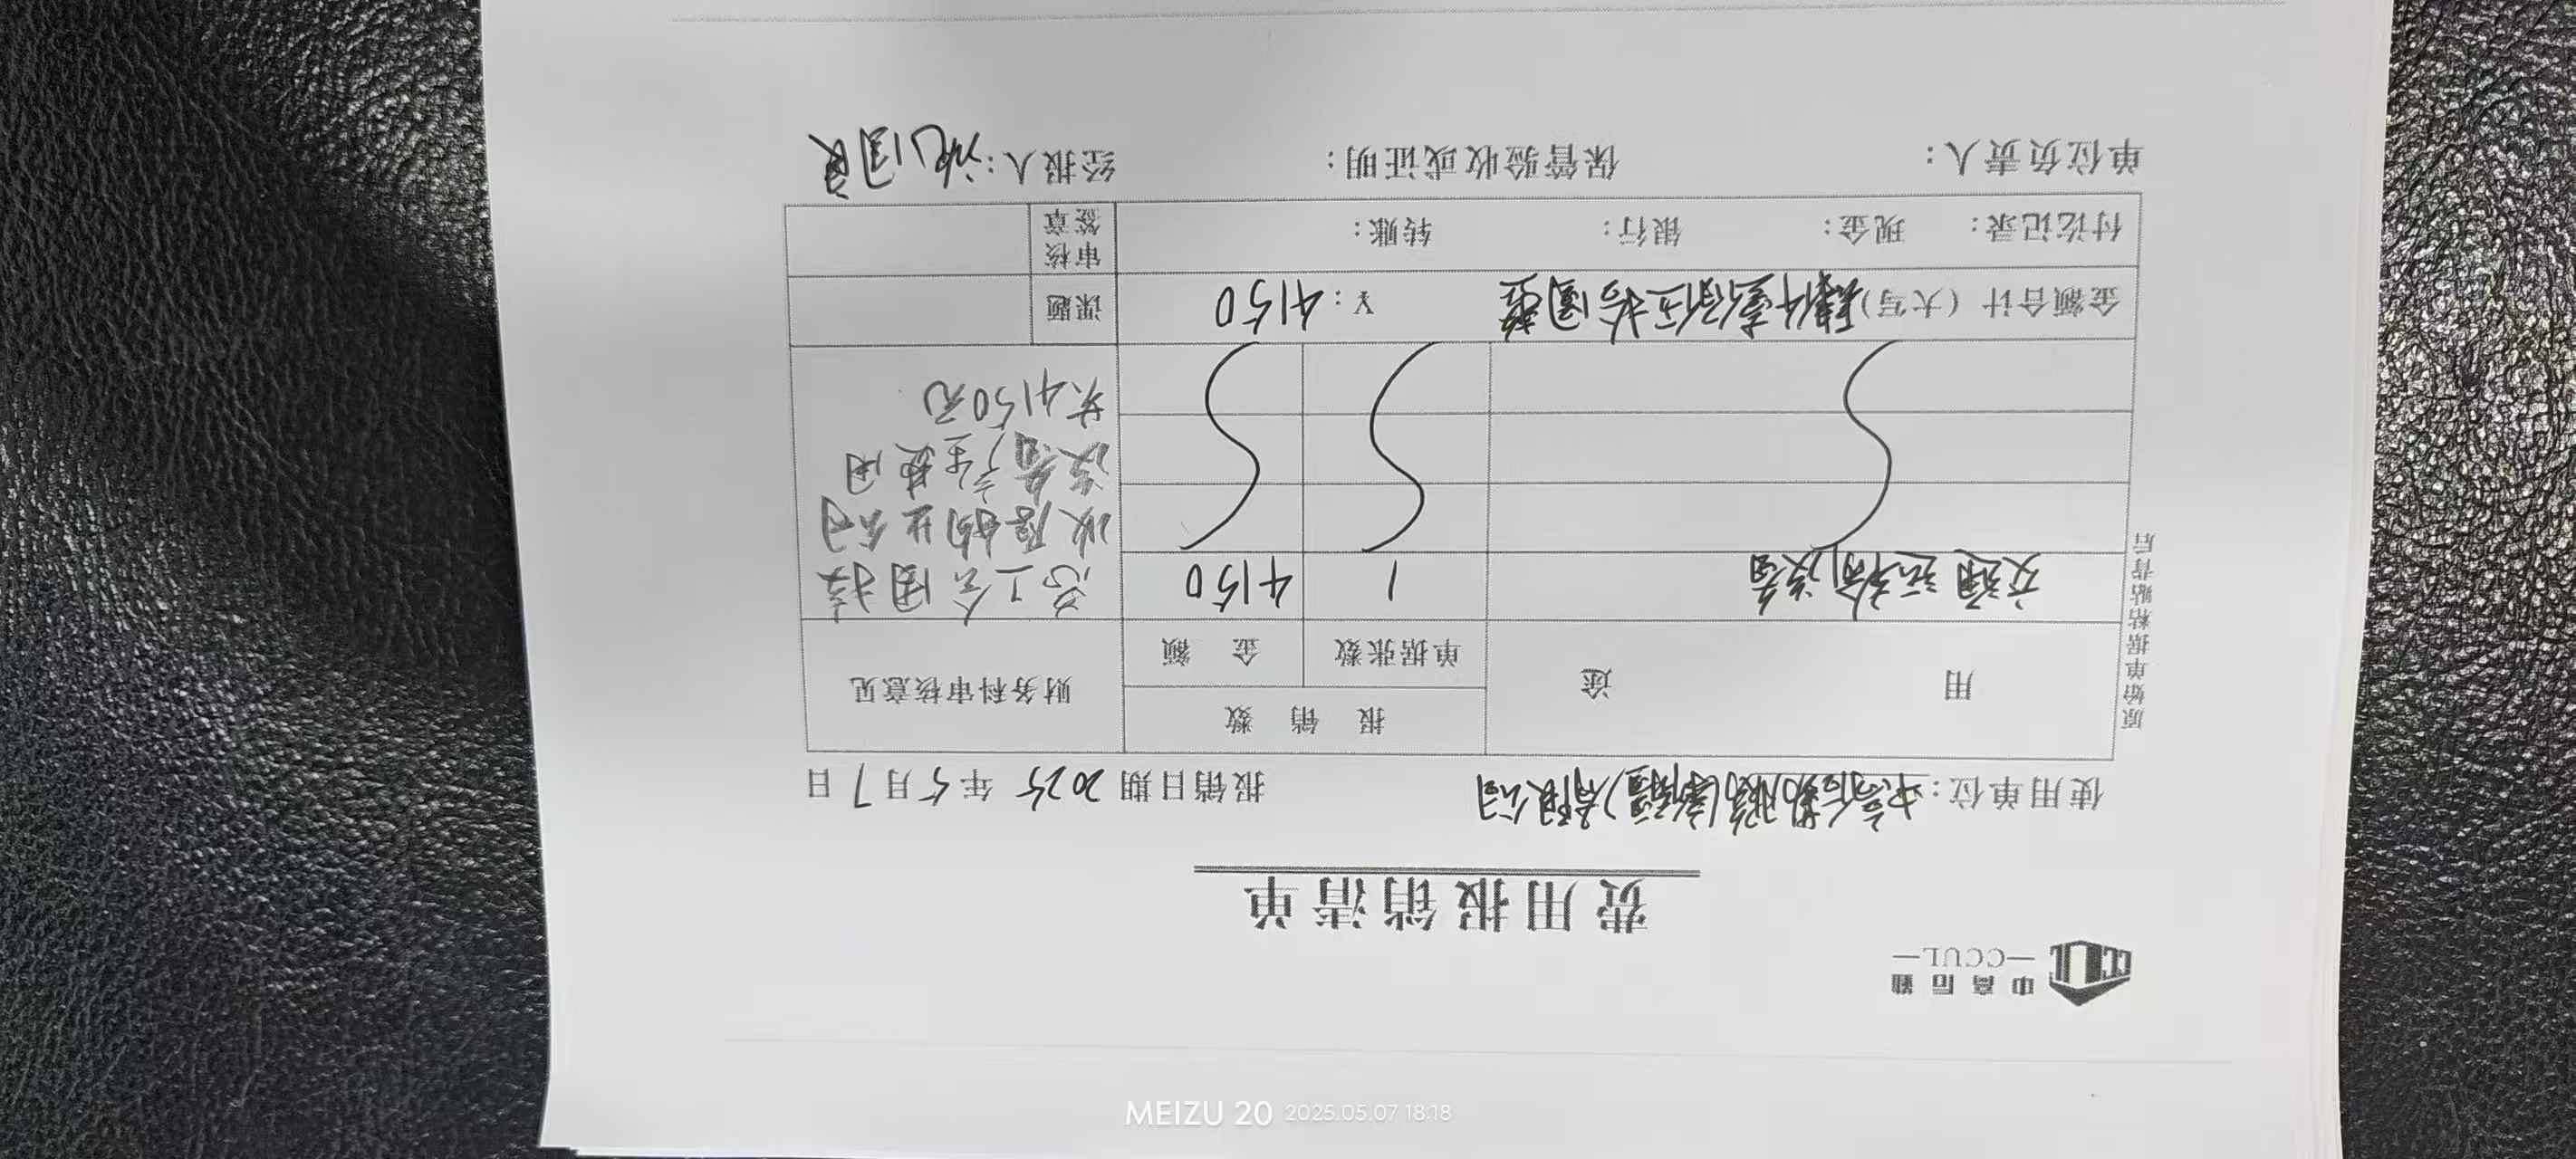 中高后勤
—CCUL—
CCUL
费用报销清单
使用单位：中高后勤服务(新疆)有限公司 报销日期 2025 年 5 月 7 日
用 途 报 销 数 财务科审核意见
单据张数 金 额
交通运输设备 1 4150
总工会
收 的 公司
设备 使用
共4150元
金额合计（大写）肆仟壹佰伍拾圆整 ￥：4150 课题
付讫记录： 现金： 银行： 转账： 审核签章
单位负责人： 保管验收或证明： 经报人：
原始单据粘贴背后
MEIZU 20 2025.05.07 18:18